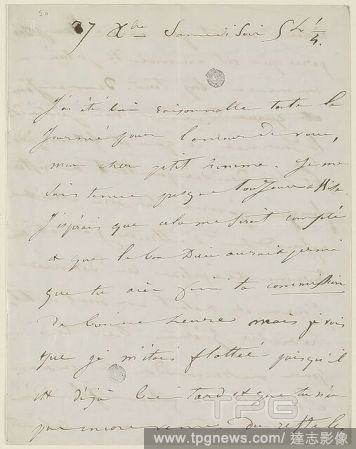 50
27 Xbre Samedi Soir 5 h ¼.
J'ai été bien raisonnable toute la
journée pour l'amour de vous,
mon cher petit homme. Je me
suis tenue presque toujours
J'espérais que cela me serait compté
et que le bon Dieu aurait permis
que tu aies fini ta commission
de bonne heure mais je vois
que je m'étais flattée puisqu'il
est déjà bien tard et que tu n'es
pas encore venu. Du reste le
TPG
www.tpgnews.com/達志影像